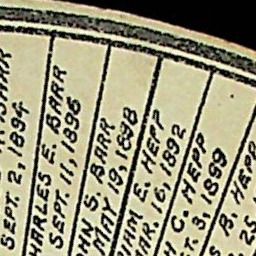 SEPT. 2, 1894
CHARLES E. BARR
SEPT. 11, 1896
JOHN S. BARR
MAY 19, 1898
E. HEPP
MAR. 16, 1892
C. HEPP
3, 1899
B. HEPP
25